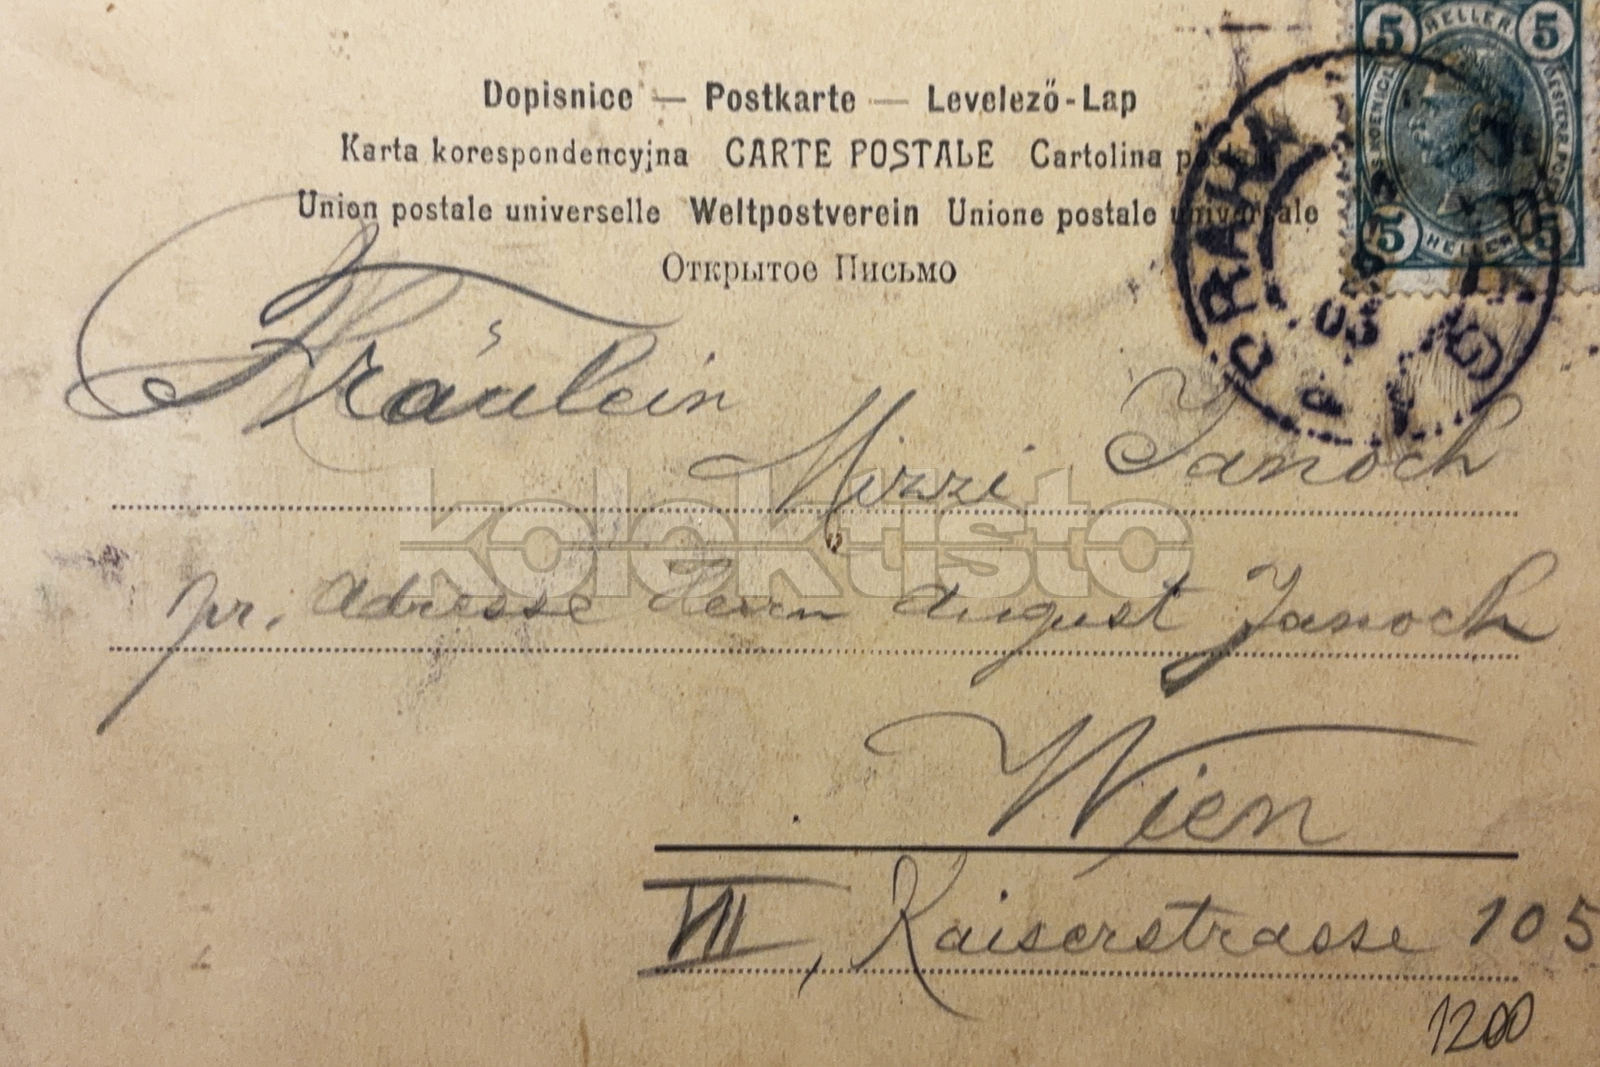 Dopisnice — Postkarte — Levelező-Lap
Karta korespondencyjna CARTE POSTALE Cartolina postale
Union postale universelle Weltpostverein Unione postale universale
Открытое Письмо
5 HELLER 5
5 HELLER 5
Fräulein
Mizzi Janoch
kolektisto
pr. Adresse Herrn August Janoch
Wien
VII, Kaiserstrasse 105
1200